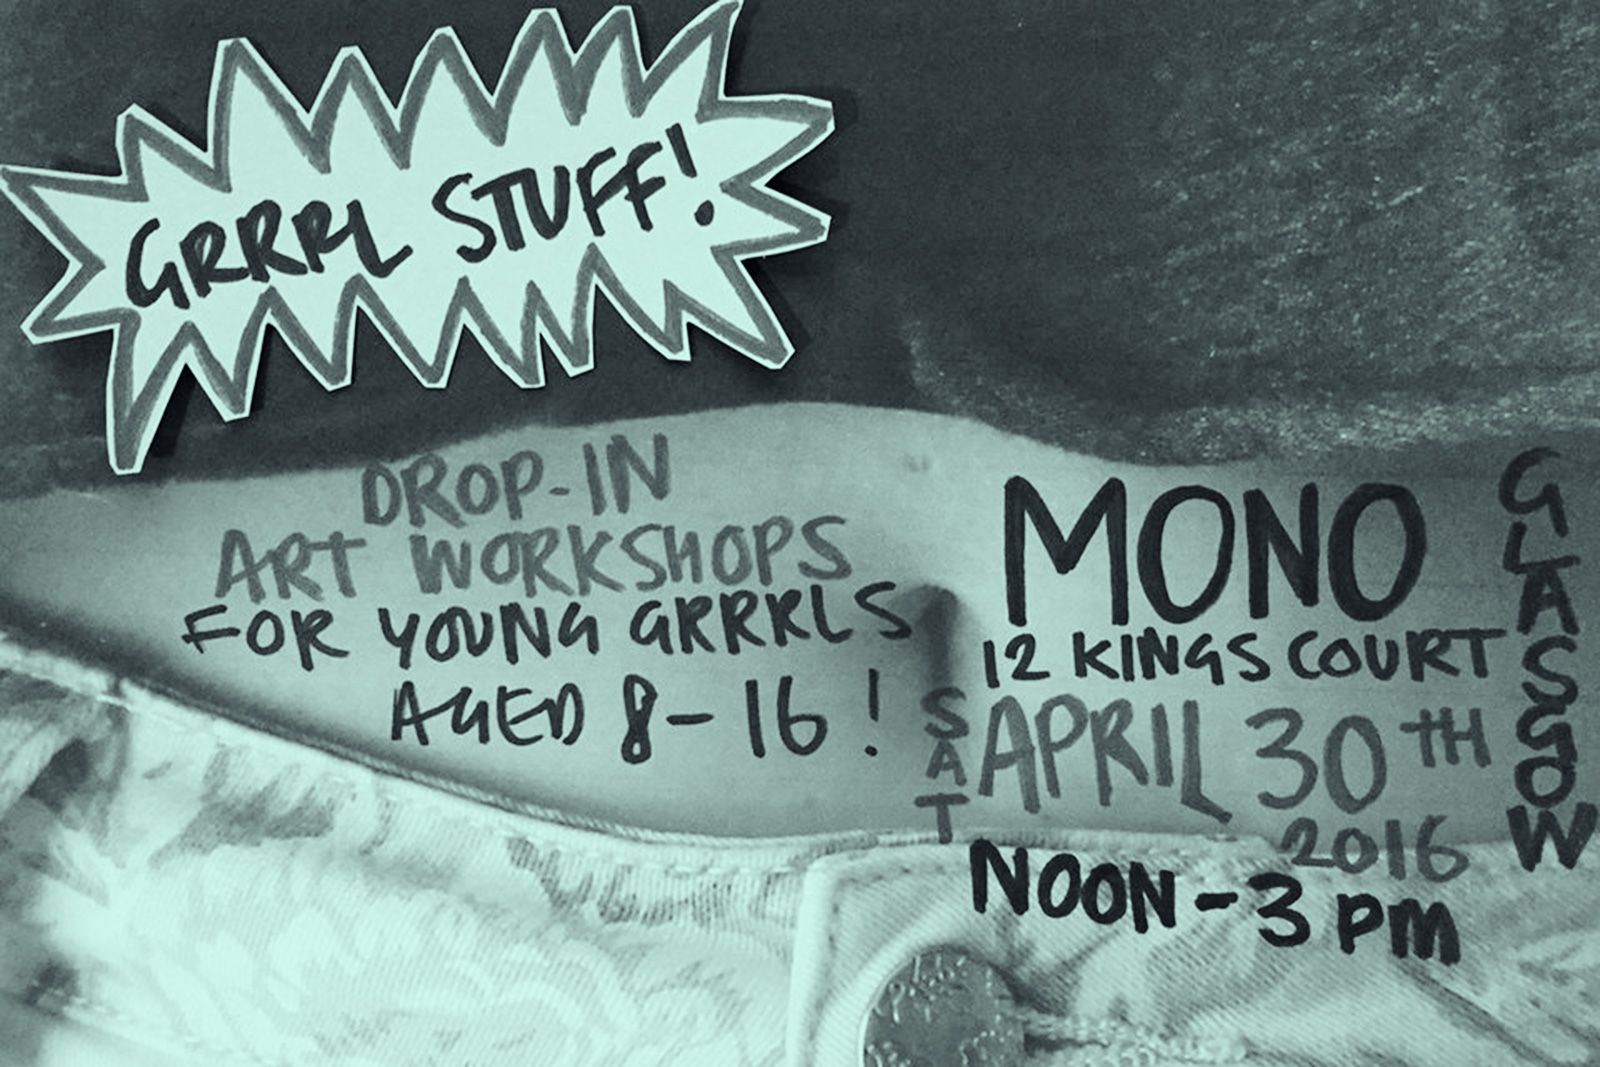 GRRRL STUFF!
DROP-IN
ART WORKSHOPS
FOR YOUNG GRRRLS
AGED 8-16!
MONO
12 KINGS COURT
GLASGOW
SAT
APRIL 30TH
2016
NOON-3PM